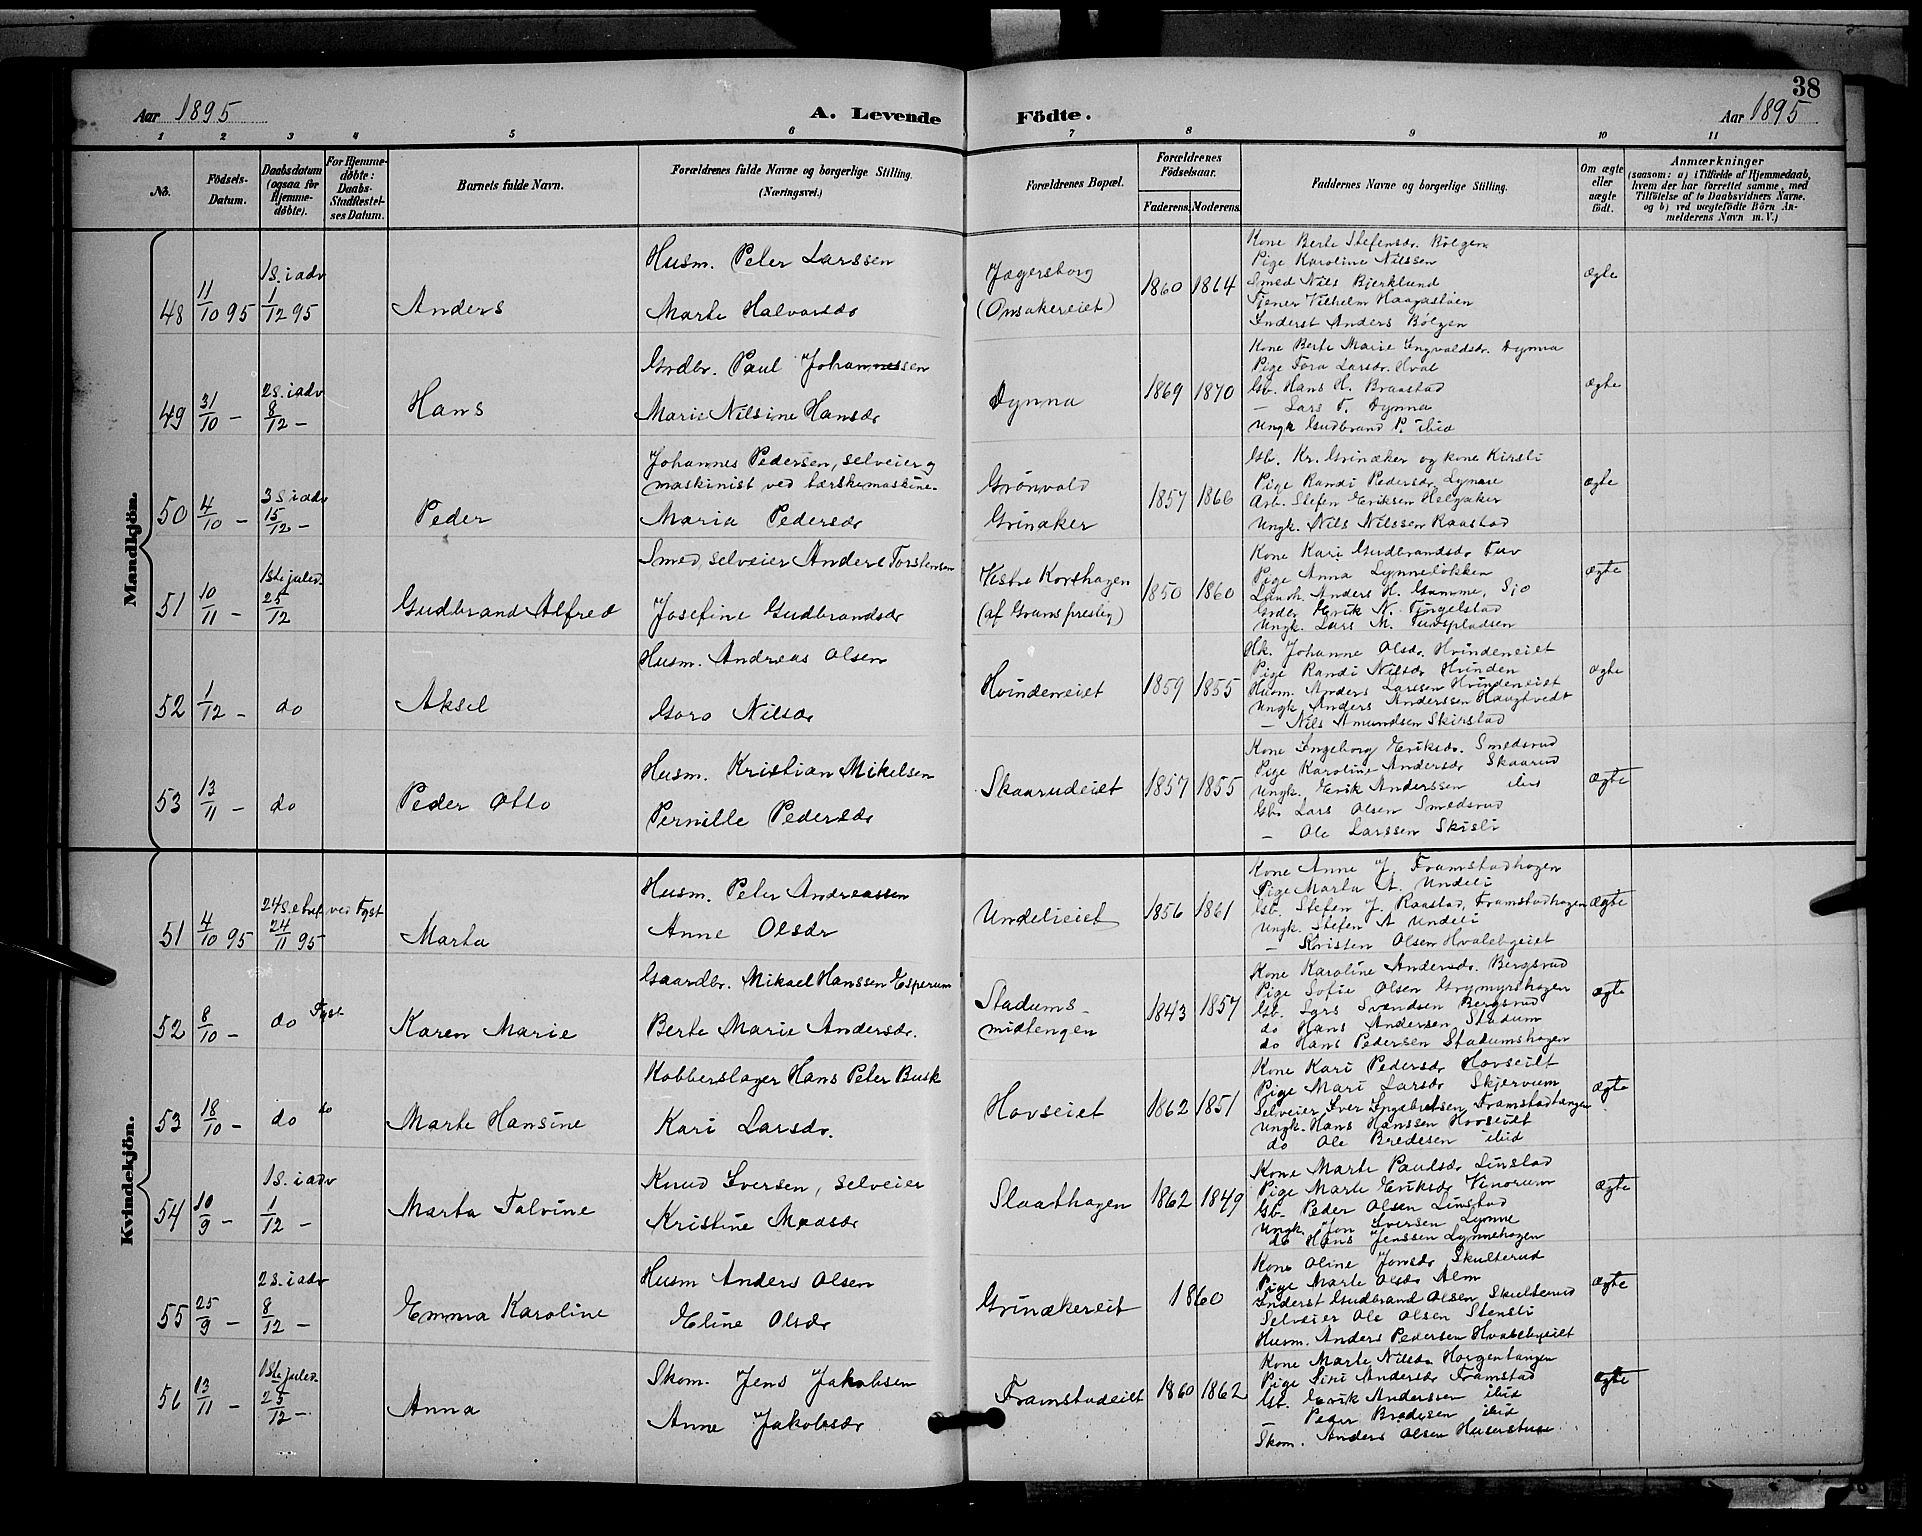 38
Aar 1895 A. Levende Födte. Aar 1895
1 2 3 4 5 6 7 8 9 10 11
No. Födsels-Datum. Daabsdatum (ogsaa for Hjemme-döbte). For Hjemme-döbte: Daabs-Stadfæstel-ses Datum. Barnets fulde Navn. Forældrenes fulde Navne og borgerlige Stilling. (Næringsvei.) Forældrenes Bopæl. Forældrenes Födselsaar. Faderens. Moderens. Faddernes Navne og borgerlige Stilling. Om ægte eller uægte födt. Anmærkninger (saasom: a) i Tilfælde af Hjemmedaab, hvem der har forrettet samme, med Tilföielse af to Daabsvidners Navne, og b) ved uægtefödte Börn An-melderens Navn m. V.)
Mandkjön.
48 11/10 95 1 S. i adv 1/12 95 Anders
Husm. Peter Larssen
Marte Halvorsdr
Jægersborg
(Onsakereiet)
1860 1864
Kone Berte Stefensdr. Bölgen
Pige Karoline Nilssen
Smed Nils Bjerklund
Tjener Vilhelm Haagastöen
Inderst Anders Bölgen
ægte
49 31/10 - 2 S. i adv 8/12 - Hans
Grdbr. Paul Johannessen
Marie Nilsine Hansdr
Dynna
1869 1870
Kone Berte Marie Ingvaldsdr. Dynna
Pige Tora Larsdr. Hval
Gb. Hans H. Braastad
— Lars T. Dynna
Ungk Gudbrand P. ibid
ægte
50 4/10 - 3 S i adv 15/12 - Peder
Johannes Pedersen, selveier og
maskinist ved tærskemaskine.
Maria Pedersdr
Grönvold
Grinaker
1857 1866
Gb. Kr. Grinaker og kone Kirsti
Pige Randi Pedersdr Lynne
Arb. Stefen Eriksen Helgaker
Ungk. Nils Nilssen Raastad
ægte
51 10/11 - 1ste juled. 25/12 Gudbrand Alfred
Smed, selveier Anders Torstensen
Josefine Gudbrandsdr
Vestre Korshagen
(af Grans presteg)
1850 1860
Kone Kari Gudbrandsdr Tuv
Pige Anna Lynnelökken
Landh. Anders H. Gamme,
Grdbr. Erik N. Tingelstad
Ungk. Lars M. Tuvspladsen
ægte
52 1/12 - do Aksel
Husm. Andreas Olsen
Goro Nilsdr
Hvindeneiet
1859 1855
Hk. Johanne Olsdr. Hvindeneiet
Pige Randi Nilsdr Hvinden
Husm. Anders Larssen Hvindeneiet
Ungk Anders Anderssen Haugtvedt
— Nils Amundsen Skirstad
ægte
53 13/11 - do Peder Otto
Husm. Kristian Mikelsen
Pernille Pedersdr
Skaarudeiet
1857 1855
Kone Ingeborg Eriksdr. Smedsrud
Pige Karoline Andersdr Skaarud
Ungk. Erik Anderssen ibid
Gb. Lars Olsen Smedsrud
— Ole Larssen Skisli
ægte
Kvindekjön.
51 4/10 95 24 S. e tref. ved Fyst 24/11 95 Marta
Husm. Peter Andreassen
Anne Olsdr
Undelieiet
1856 1861
Kone Anne J. Framstadhagen
Pige Marta A. Undeli
Gb. Stefen J. Raastad, Framstadhagen
Ungk. Stefen A Undeli
— Kristen Olsen Hvalebyeiet
ægte
52 8/10 - do Fyst Karen Marie
Gaardbr. Mikael Hanssen Esperum
Berte Marie Andersdr.
Stadums-
midtengen
1843 1857
Kone Karoline Andersdr. Bergsrud
Pige Sofie Olsen Grymyrshagen
Gb. Lars Svendsen Bergsrud
do Hans Andersen Stadum
do Hans Pedersen Stadumshagen
ægte
53 18/10 - do do Marte Hansine
Kobberslager Hans Peter Busk
Kari Larsdr.
Hovseiet
1862 1851
Kone Kari Pedersdr Hovseiet
Pige Mari Larsdr Skjervum
Selveier Iver Engebretsen Framstadtangen
Ungk. Hans Hanssen Hovseiet
do Ole Bredesen ibid
ægte
54 10/9 - 1 S. i adv 1/12 - Marta Talvine
Knud Iversen, selveier
Kristine Madsdr
Slaathagen
1862 1849
Kone Marte Paulsdr Linstad
Pige Marte Eriksdr Vinorum
Gb. Peder Olsen Linstad
Ungk. Jon Iversen Lynne
do Hans Jenssen Lynnehagen
ægte
55 25/9 - 2 S. i adv 8/12 - Emma Karoline
Husm Anders Olsen
Eline Olsdr
Grinakereiet
1860
Kone Oline Jonsdr Skulterud
Pige Marte Olsdr Alm
Inderst Gudbrand Olsen Skulterud
Selveier Ole Olsen Stensli
Husm. Anders Pedersen Hvalebyeiet
ægte
56 13/11 - 1ste juled. 25/12 - Anna
Skom. Jens Jakobsen
Anne Jakobsdr
Framstadeiet
1860 1862
Kone Marte Nilsdr Horgentangen
Pige Siri Andersdr Framstad
Gb. Erik Anderssen ibid
— Peder Bredesen ibid
Skom. Anders Olsen
ægte